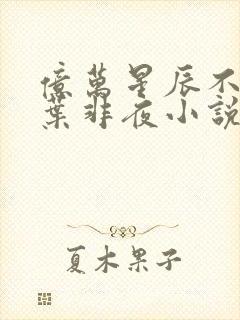 億萬星辰不
葉非夜小說
夏木果子